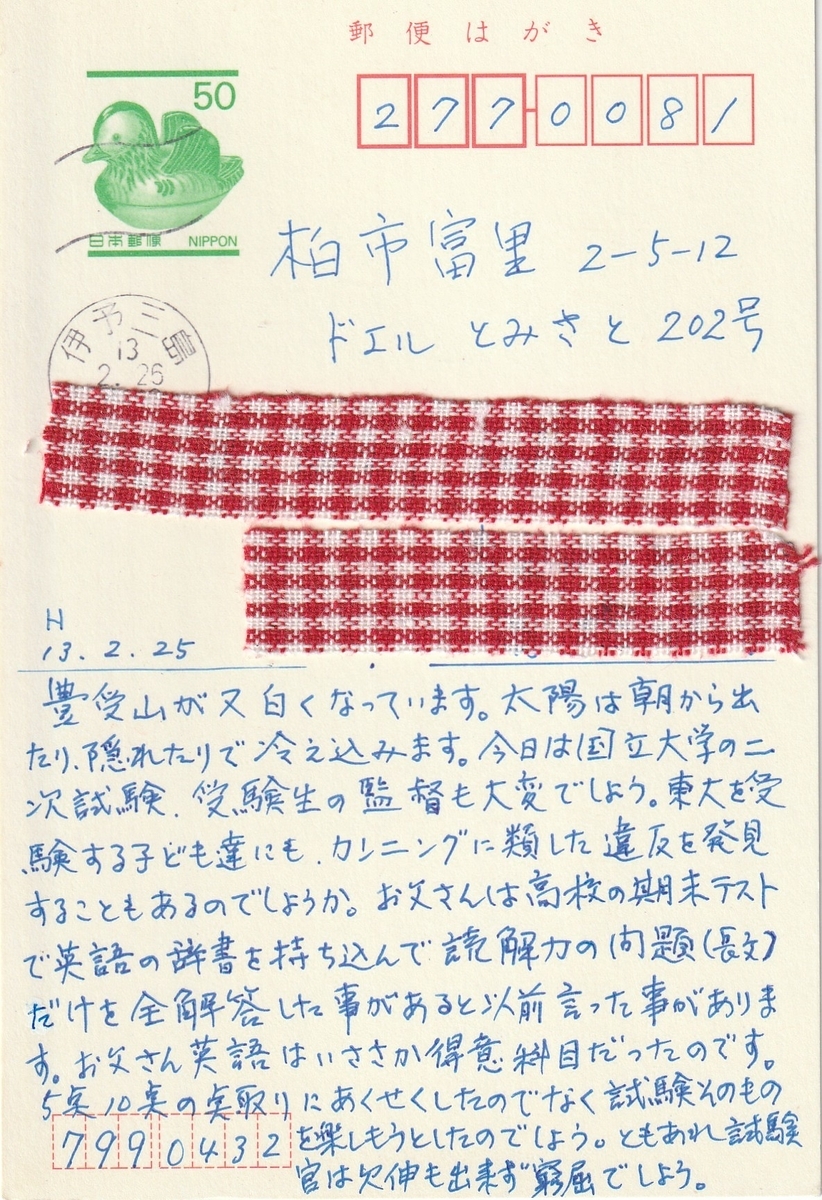 郵便はがき
50
日本郵便 NIPPON
2770081
柏市富里 2-5-12
ドエル とみさと 202号
伊予三島
13
2.26
H
13.2.25
豊受山が又白くなっています。太陽は朝から出
たり、隠れたりで冷え込みます。今日は国立大学の二
次試験、受験生の監督も大変でしょう。東大を受
験する子ども達にも、カンニングに類した違反を発見
することもあるのでしょうか。お父さんは高校の期末テスト
で英語の辞書を持ち込んで読解力の問題(長文)
だけを全解答した事があると以前言った事がありま
す。お父さん英語はいささか得意科目だったのです。
5点10点の点取りにあくせくしたのでなく試験そのもの
を楽しもうとしたのでしょう。ともあれ試験
官は欠伸も出来ず窮屈でしょう。
7990432